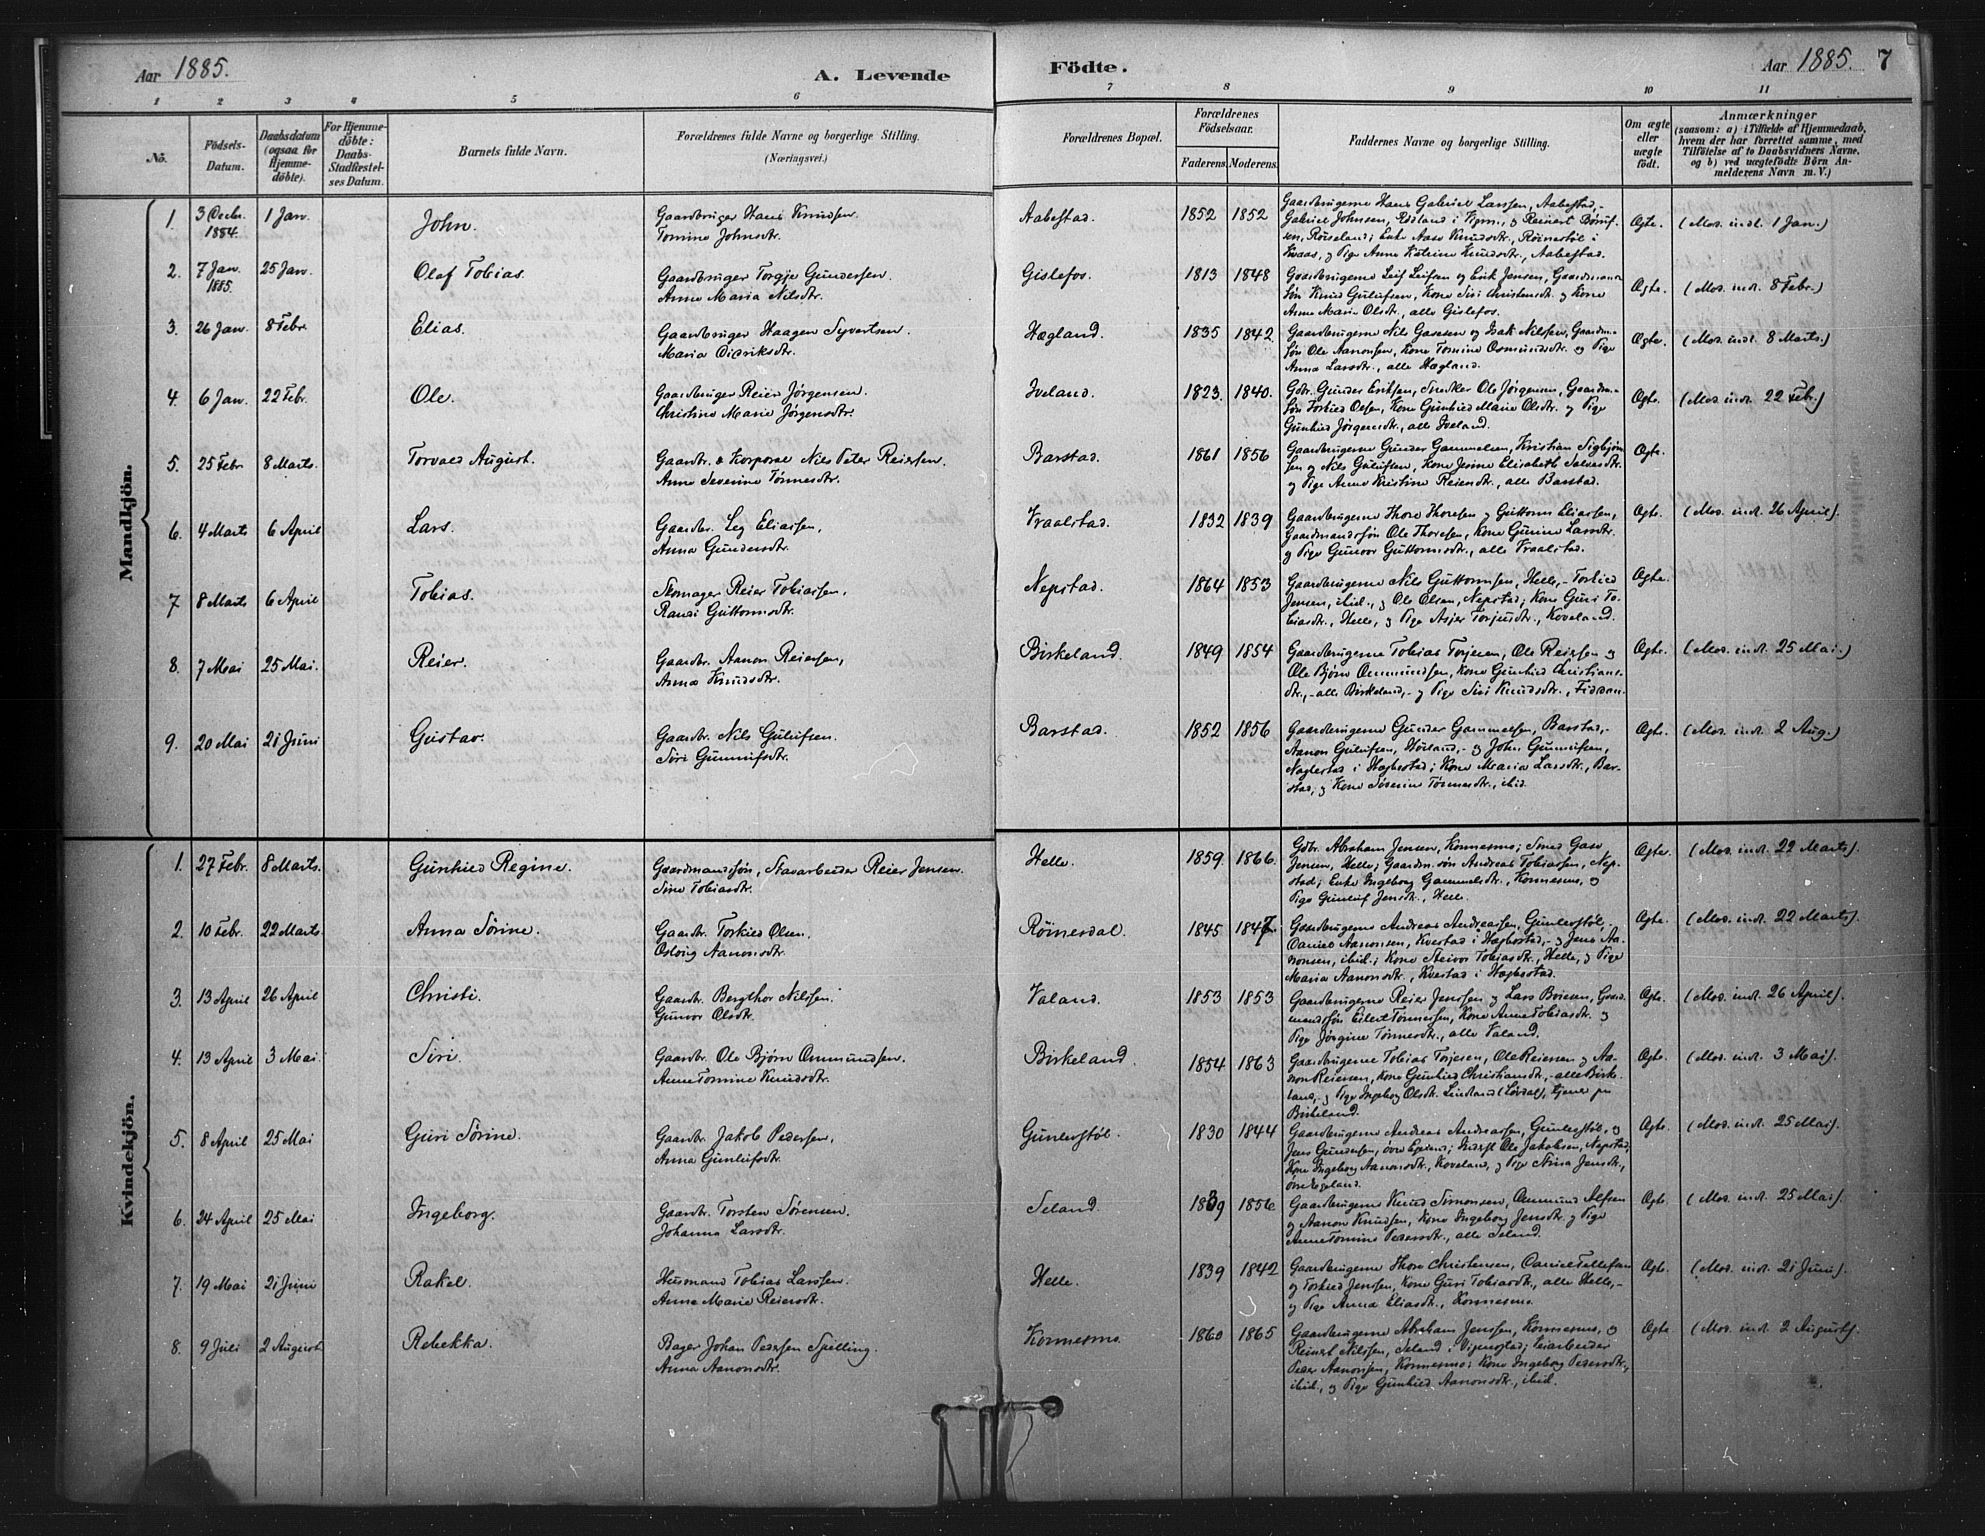 Aar 1885.
A. Levende Födte.
Aar 1885. 7
1 2 3 4 5 6 7 8 9 10 11
No.
Födsels-
Datum.
Daabsdatum
(ogsaa for
Hjemme-
döbte).
For Hjemme-
döbte:
Daabs-
Stadfæstel-
ses Datum.
Barnets fulde Navn.
Forældrenes fulde Navne og borgerlige Stilling.
(Næringsvei.)
Forældrenes Bopæl.
Forældrenes
Födselsaar.
Faderens. Moderens.
Faddernes Navne og borgerlige Stilling.
Om ægte
eller
uægte
födt.
Anmærkninger
(saasom: a) i Tilfælde af Hjemmedaab,
hvem der har forrettet samme, med
Tilföielse af to Daabsvidners Navne,
og b) ved uægtefödte Börn An-
melderens Navn m. V.)
Mandkjön.
1. 3 Decbr. 1884. 1 Jan. John.
Gaardbruger Hans Knudsen
Tomine Johnsdtr.
Aabestad. 1852 1852
Gaardbrugerne Hans Gabriel Larssen, Aabestad,-
Gabriel Johnsen,
Enke Aase Knudsdtr.,
Pige Anne Katrine Knudsdtr., Aabestad.
Ægte. (Mod. indl. 1 Jan.)
2. 7 Jan. 1885. 25 Jan. Olaf Tobias.
Gaardbruger Torgje Gundersen
Anne Maria Nilsdtr.
Gislefos. 1813 1848
Gaardbrugerne Leif Leifsen og Erik Jensen, Gaardmands
søn Knud Gulufsen, Kone Siri Christensdtr. og Kone
Anne Marie Olsdtr., alle Gislefos.
Ægte. (Mod. indl. 8 Febr.)
3. 26 Jan. 8 Febr. Elias.
Gaardbruger Haagen Syvertsen.
Maria Didriksdtr.
Hægland. 1835 1842
Gaardbrugerne Nils Gasesen og Isak Nilssen, Gaardm.-
søn Ole Aanonsen, Kone Tomine Osmundsdtr. og Pige
Anna Larsdtr., alle Hægland.
Ægte. (Mod. indl. 8 Marts.)
4. 6 Jan. 22 Febr. Ole.
Gaardbruger Reier Jørgensen.
Christine Marie Jørgensdtr.
Iveland. 1823. 1840.
Gdbr. Gunder Eriksen, Snedker Ole Jørgensen, Gaardm.-
søn Torkild Olsen, Kone Gunhild Marie Olsdtr. og Pige
Gunhild Jørgensdtr., alle Iveland.
Ægte. (Mod. indl. 22 Febr.)
5. 25 Febr 8 Marts. Torvald August.
Gaardbr. & Korporal Nils Peter Reiersen.
Anne Severine Tønnesdtr.
Barstad. 1861 1856
Gaardbrugerne Gunder Gammelsen, Kristian Sigbjørn-
sen og Nils Gulufsen, Kone Jesine Elisabeth Salvesdtr.
og Pige Anne Kristine Reiersdtr., alle Barstad.
Ægte.
6. 4 Marts 6 April Lars.
Gaardbr. Leg Eliassen,
Anna Gundersdtr.
Vraalstad. 1832 1839
Gaardbrugerne Thore Thoresen og Guttorm Eliassen,
Gaardmandssøn Ole Thoresen, Kone Gunne Larsdtr.
og Pige Gunvor Guttormsdtr., alle Vraalstad.
Ægte. (Mod. indl. 26 April).
7 8 Marts 6 April Tobias.
Skomager Reier Tobiassen,
Randi Guttormsdtr.
Nepstad. 1864 1853
Gaardbrugerne Nils Guttormsen, Helle,- Torkild
Jensen, ibid., og Ole Olsen, Nepstad; Kone Guri To-
biasdtr., Helle, og Pige Asjer Torjusdtr., Koveland.
Ægte.
8. 7 Mai 25 Mai. Reier.
Gaardbr. Aanon Reiersen,
Anna Knudsdtr.
Birkeland. 1849 1854
Gaardbrugerne Tobias Torjesen, Ole Reiersen og
Ole Bjørn Ommundsen, Kone Gunhild Christians-
dtr.,- alle Birkeland,- og Pige Siri Knudsdtr.,
Ægte. (Mod. indl. 25 Mai.)
9. 20 Mai 21 Juni Gustav.
Gaardbr. Nils Gulufsen.
Siri Gunnufsdtr.
Barstad. 1852 1856
Gaardbrugerne Gunder Gammelsen, Barstad,-
Aanon Gulufsen, Høiland,- og John Gunnufsen,
Naglestad i Hægbostad; Kone Maria Larsdtr., Bar-
stad, og Kone Severine Tønnesdtr., ibid.
Ægte. (Mod. indl. 2 Aug.)
Kvindekjön.
1. 27 Febr. 8 Marts. Gunhild Regine.
Gaardmandssøn, Stavarbeider Reier Jensen.
Sine Tobiasdtr.
Helle. 1859. 1866.
Gdbr. Abraham Jensen, Konnesmo; Smed Gase
Jensen, Helle; Gaardm.søn Andreas Tobiassen, Nep-
stad; Enke Ingeborg Gammelsdtr., Konnesmo, og
Pige Gunluf Jensdtr., Helle.
Ægte. (Mod. indl. 22 Marts).
2. 10 Febr. 22 Marts Anna Sørine.
Gaardbr. Torkild Olsen.
Oslaug Aanonsdtr.
Röinesdal. 1845 1847.
Gaardbrugerne Andreas Andreassen, Gunlevstöl,-
Daniel Aanonsen, Kvestad i Hægbostad,- og Jens Aa-
nonsen, ibid.; Kone Steivor Tobiasdtr., Helle, og Pige
Maria Aanonsdtr., Kvestad i Hægbostad.
Ægte. (Mod. indl. 22 Marts).
3. 13 April 26 April Christi.
Gaardbr. Bergthor Nilssen.
Gunvor Olsdtr.
Valand. 1853 1853
Gaardbrugerne Reier Jenssen og Lars Boiesen, Gaard-
mandssøn Eilert Tønnessen, Kone Anne Tobiasdtr. og
Pige Jørgine Tønnesdtr., alle Valand.
Ægte. (Mod. indl. 26 April).
4. 13 April 3 Mai. Siri.
Gaardbr. Ole Bjørn Ommundsen.
Anne Tomine Knudsdtr.
Birkeland 1854 1863
Gaardbrugerne Tobias Torjesen, Ole Reiersen og Aa-
non Reiersen, Kone Gunhild Christiansdtr.,- alle Birke-
land, og Pige Ingeborg Olsdtr. Lindland (Lørdal), tjener paa
Birkeland.
Ægte. (Mod. indl. 3 Mai).
5. 8 April 25 Mai Guri Sørine.
Gaardbr. Jakob Pedersen,
Anna Gunlufsdtr.
Gunlevstöl. 1830 1844
Gaardbrugerne Andreas Andreassen, Gunlevstöl, og
Jens Gundersen, øvre Egeland; Inderst Ole Jakobsen, Nepstad,
Kone Ingeborg Aanonsdtr., Koveland, og Pige Stina Jensdtr.,
øvre Egeland.
Ægte. (Mod. indl. 25 Mai).
6. 24 April 25 Mai Ingeborg.
Gaardbr. Torsten Sørensen.
Johanna Larsdtr.
Seland. 1839 1856
Gaardbrugerne Knud Simonsen, Ommund Alfsen
og Aanon Knudsen, Kone Ingeborg Jensdtr. og Pige
Anne Tomine Pedersdtr., alle Seland.
Ægte. (Mod. indl. 25 Mai).
7. 19 Mai 21 Juni Rakel.
Husmand Tobias Larssen.
Anne Marie Reiersdtr.
Helle. 1839 1842
Gaardbrugerne Thore Christensen, Daniel Tellefsen
og Torkild Jenssen, Kone Guri Tobiasdtr., alle Helle,-
og Pige Anna Eliasdtr., Konnesmo.
Ægte. (Mod. indl. 21 Juni).
8. 9 Juli 2 August Rebekka.
Bager Johan Pedersen Spilling.
Anna Aanonsdtr.
Konnesmo. 1860 1865
Gaardbrugerne Abraham Jenssen, Konnesmo, og
Reinert Nilssen, Seland i Vigmostad; Leiarbeider
Peder Aanonsen, Konnesmo; Kone Ingeborg Pedersdtr.,
ibid., og Pige Gunhild Aanonsdtr., ibid.
Ægte. (Mod. indl. 2 August).